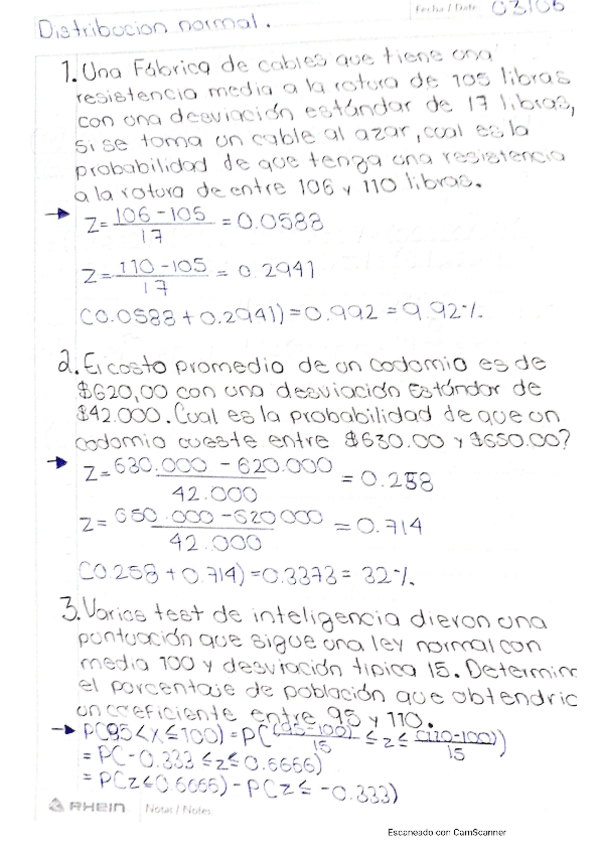 Distribucion normal.
Fecha / Date 03/06
1. Una Fábrica de cables que tiene una
resistencia media a la rotura de 105 libras
con una desviación estándar de 17 libras,
si se toma un cable al azar, cual es la
probabilidad de que tenga una resistencia
a la rotura de entre 106 y 110 libras.
→ Z= 106-105 = 0.0588
17
Z= 110-105 = 0.2941
17
(0.0588 + 0.2941) = 0.992 = 9.92%
2. El costo promedio de un codomio es de
$620,00 con una desviación Estándar de
$42.000. Cual es la probabilidad de que un
codomio cueste entre $630.00 y $650.00?
→ Z= 630.000 - 620.000 = 0.238
42.000
Z= 650.000 - 620000 = 0.714
42.000
(0.258 + 0.714) = 0.3373 = 32%
3. Varios test de inteligencia dieron una
puntuación que sigue una ley normal con
media 100 y desviación tipica 15. Determin
el porcentaje de población que obtendric
un coeficiente entre 95 y 110.
→ P(95<x≤100) = P((95-100)/15 ≤ z ≤ (110-100)/15)
= P(-0.333 ≤ z ≤ 0.6666)
= P(z≤0.6666) - P(z ≤ -0.333)
RHEIN Notas / Notes
Escaneado con CamScanner